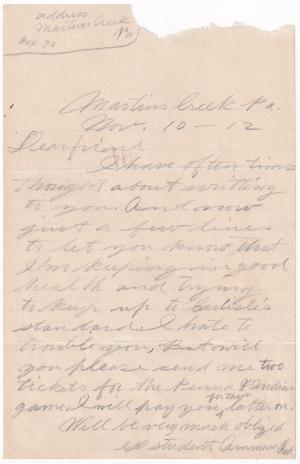 address
Martins Creek
Box 70 Pa
Martins Creek Pa.
Nov. 10 – 12
Dear friend
I have often times
thought about writting
to you. And now
just a few lines
to let you know that
I'm keeping in good
health and trying
to keep up to Carlisle's
standard. I hate to
trouble you, But will
you please send me two
tickets for the Penna & Indian
game. I will pay you for them later on.
Will be very much oblyed
ex student